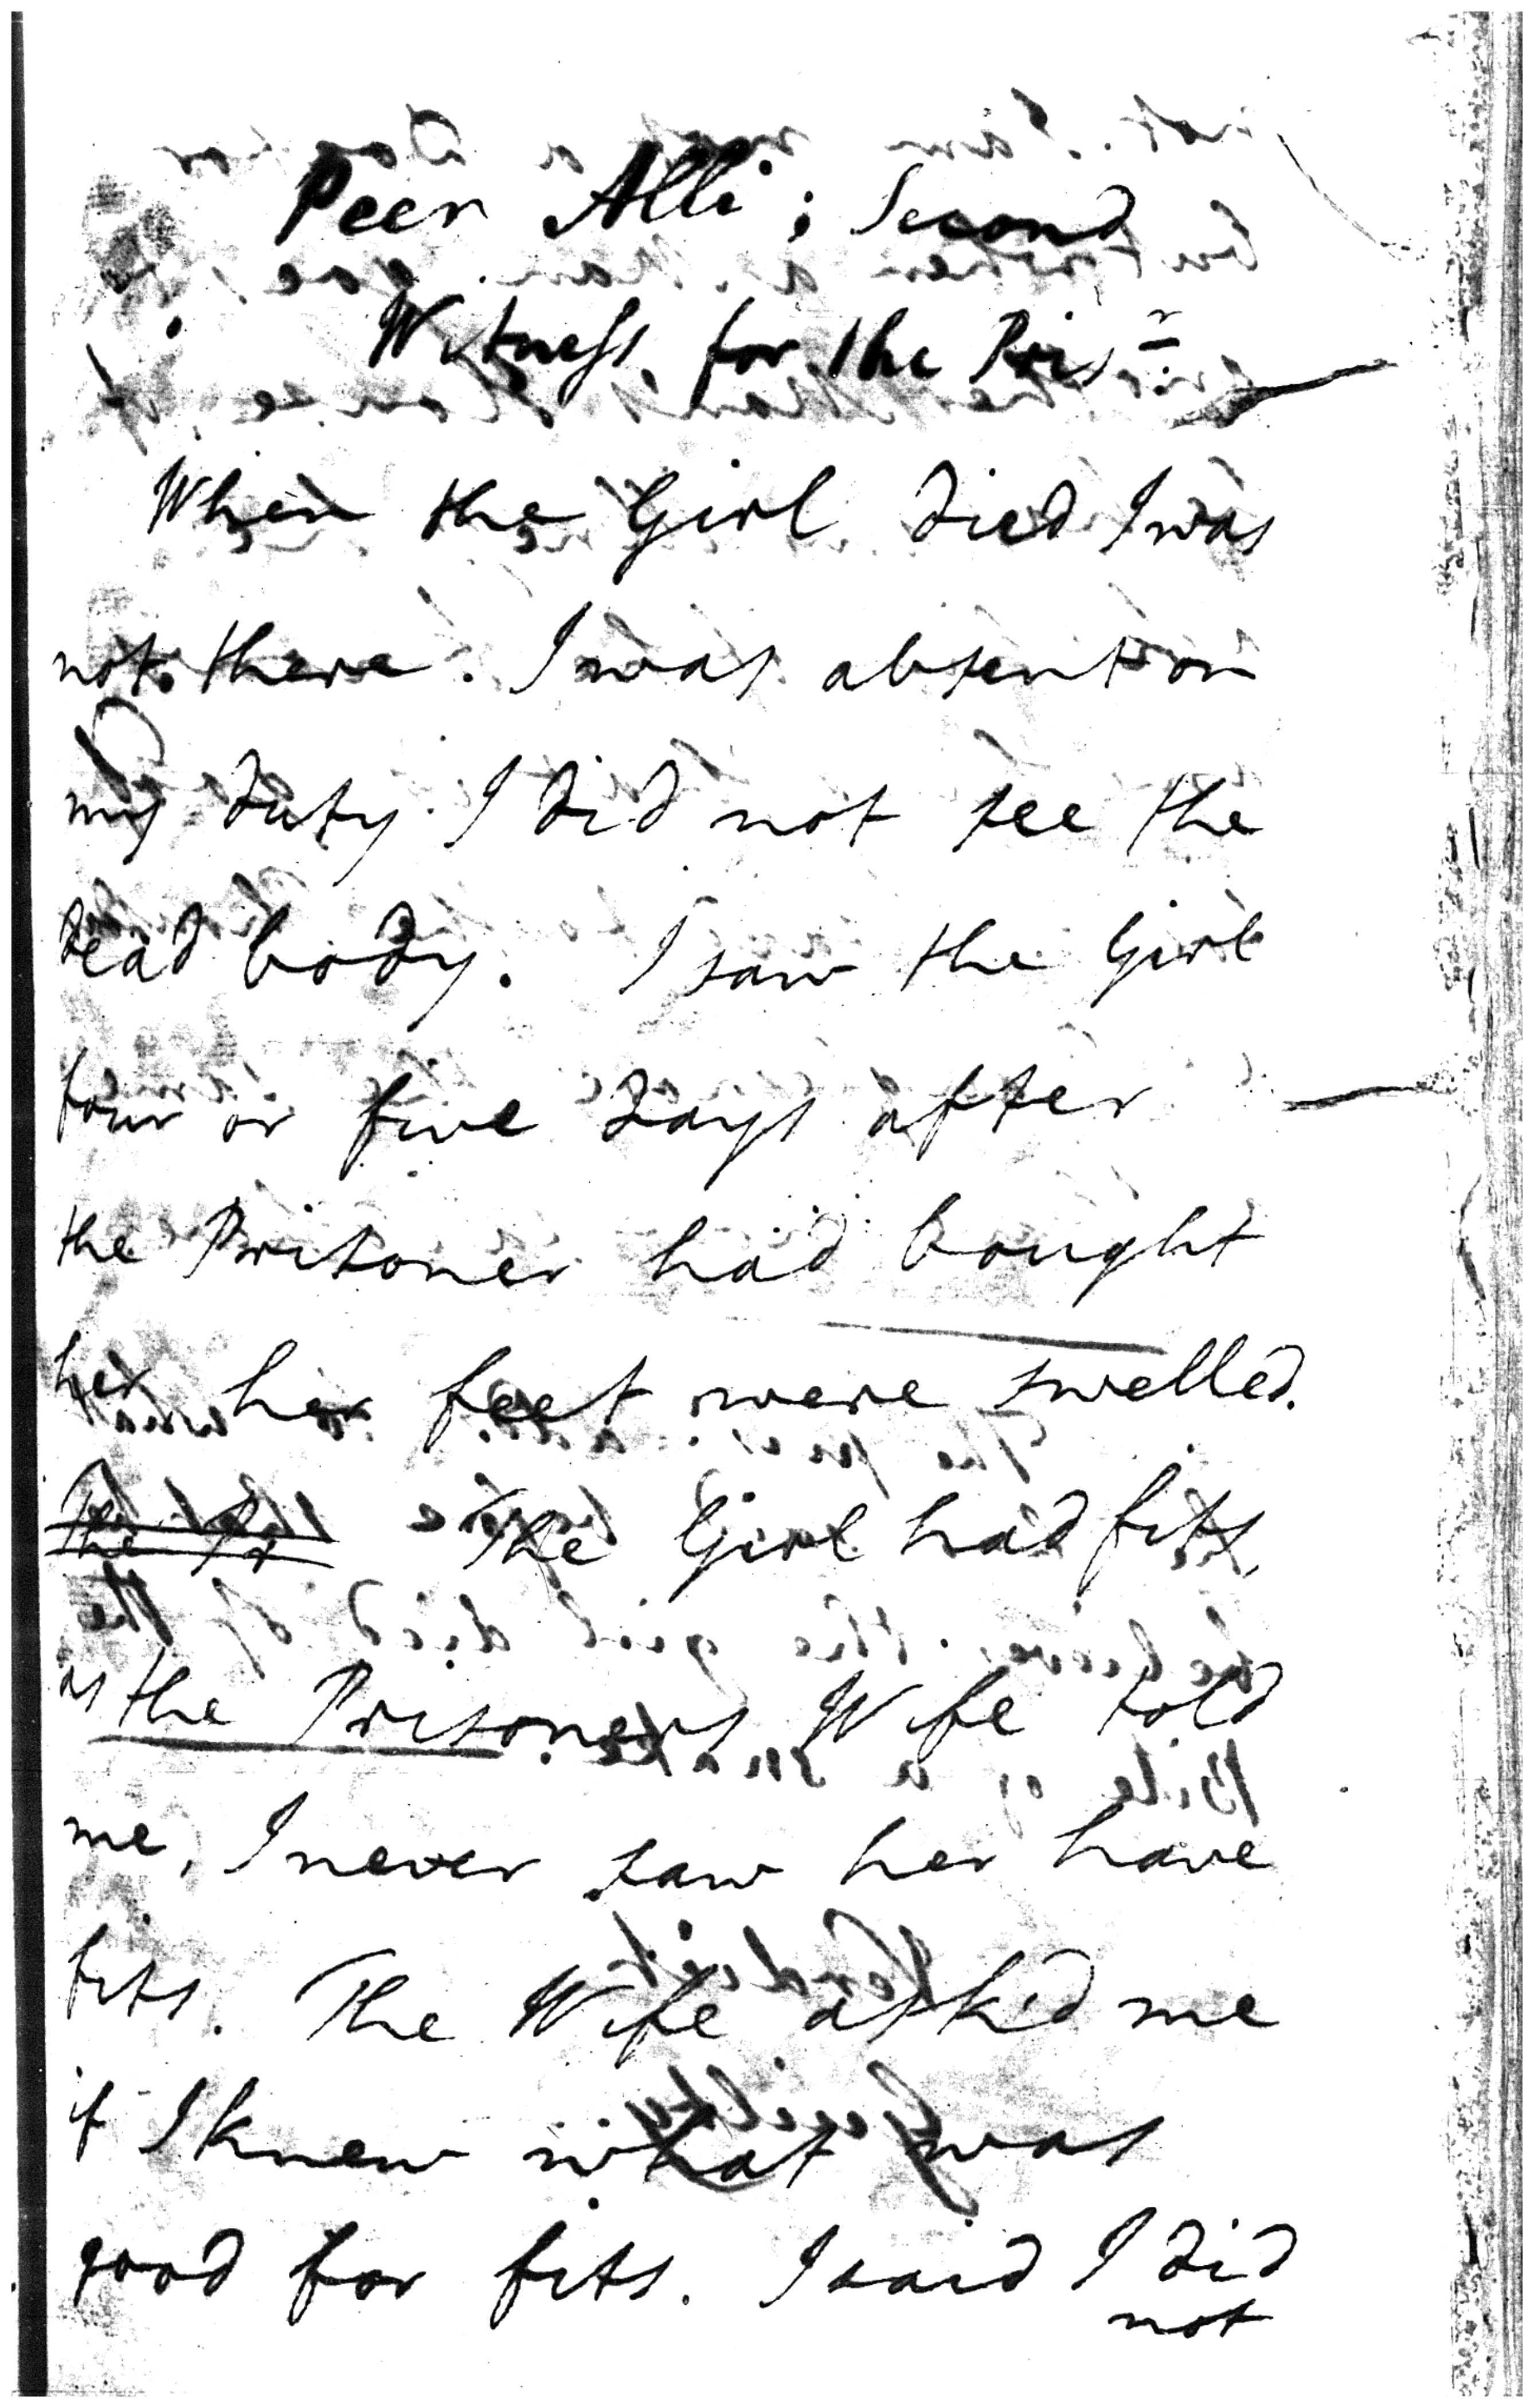 Peer Alli; Second
Witness for the Pris=r
When the Girl died I was
not there. I was absent on
my duty. I did not see the
dead body. I saw the Girl
four or five days after
the Prisoner had bought
her her feet were swelled.
The Pr The Girl had fits,
as the Prisoners Wife told
me, I never saw her have
fits. The Wife asked me
if I knew what was
good for fits. I said I did
not